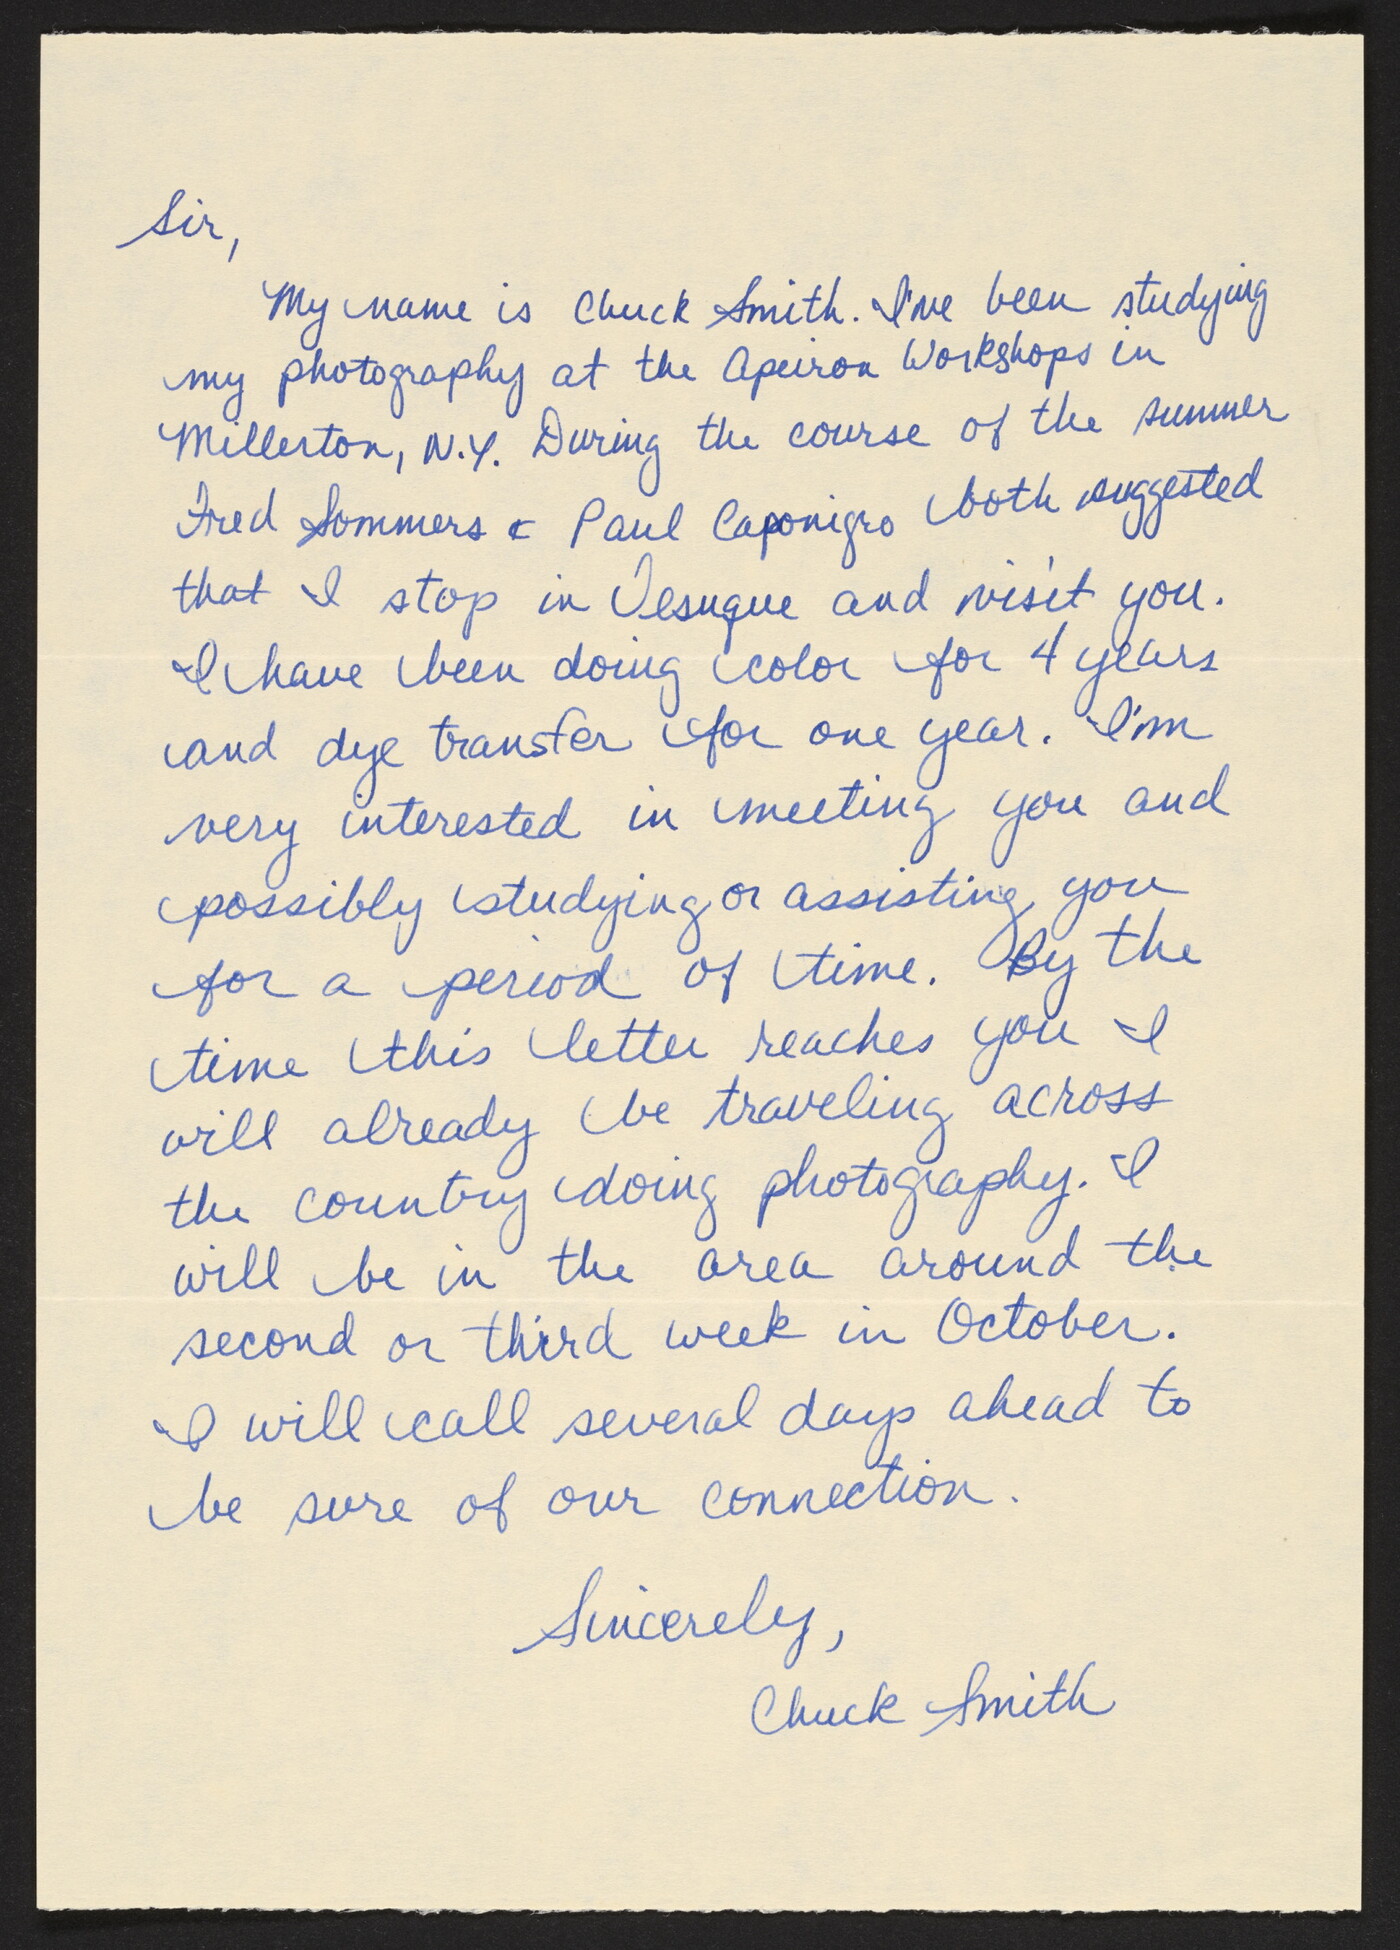 Sir,
My name is Chuck Smith. I've been studying
my photography at the Apeiron Workshops in
Millerton, N.Y. During the course of the summer
Fred Sommers & Paul Caponigro both suggested
that I stop in Tesuque and visit you.
I have been doing color for 4 years
and dye transfer for one year. I'm
very interested in meeting you and
possibly studying or assisting you
for a period of time. By the
time this letter reaches you I
will already be traveling across
the country doing photography. I
will be in the area around the
second or third week in October.
I will call several days ahead to
be sure of our connection.
Sincerely,
Chuck Smith